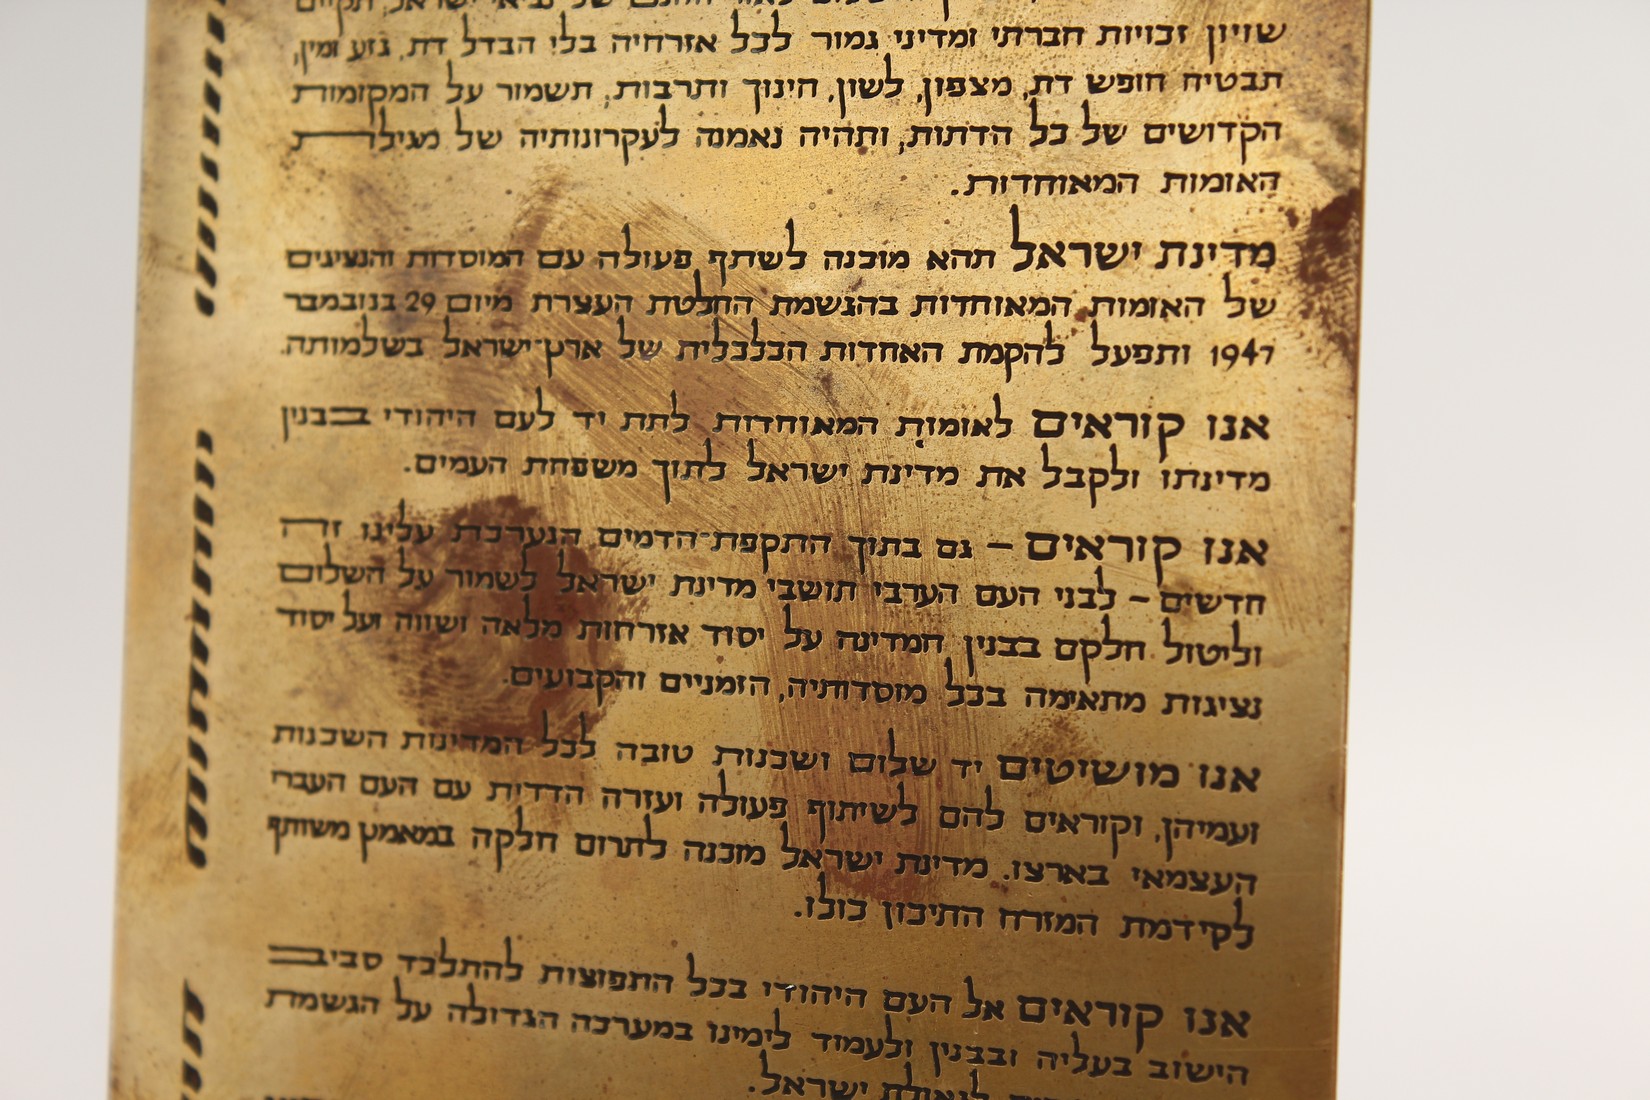 לאור חזונם של נביאי ישראל, תקיים
שויון זכויות חברתי ומדיני גמור לכל אזרחיה בלי הבדל דת, גזע ומין,
תבטיח חופש דת, מצפון, לשון, חינוך ותרבות, תשמור על המקומות
הקדושים של כל הדתות, ותהיה נאמנה לעקרונותיה של מגילת
האומות המאוחדות.
מדינת ישראל תהא מוכנה לשתף פעולה עם המוסדות והנציגים
של האומות המאוחדות בהגשמת החלטת העצרת מיום 29 בנובמבר
1947 ותפעל להקמת האחדות הכלכלית של ארץ־ישראל בשלמותה.
אנו קוראים לאומות המאוחדות לתת יד לעם היהודי בבנין
מדינתו ולקבל את מדינת ישראל לתוך משפחת העמים.
אנו קוראים – גם בתוך התקפת־הדמים הנערכת עלינו זה
חדשים – לבני העם הערבי תושבי מדינת ישראל לשמור על השלום
וליטול חלקם בבנין המדינה על יסוד אזרחות מלאה ושווה ועל יסוד
נציגות מתאימה בכל מוסדותיה, הזמניים והקבועים.
אנו מושיטים יד שלום ושכנות טובה לכל המדינות השכנות
ועמיהן, וקוראים להם לשיתוף פעולה ועזרה הדדית עם העם העברי
העצמאי בארצו. מדינת ישראל מוכנה לתרום חלקה במאמץ משותף
לקידמת המזרח התיכון כולו.
אנו קוראים אל העם היהודי בכל התפוצות להתלכד סביב
הישוב בעליה ובבנין ולעמוד לימינו במערכה הגדולה על הגשמת
לגאולת ישראל.